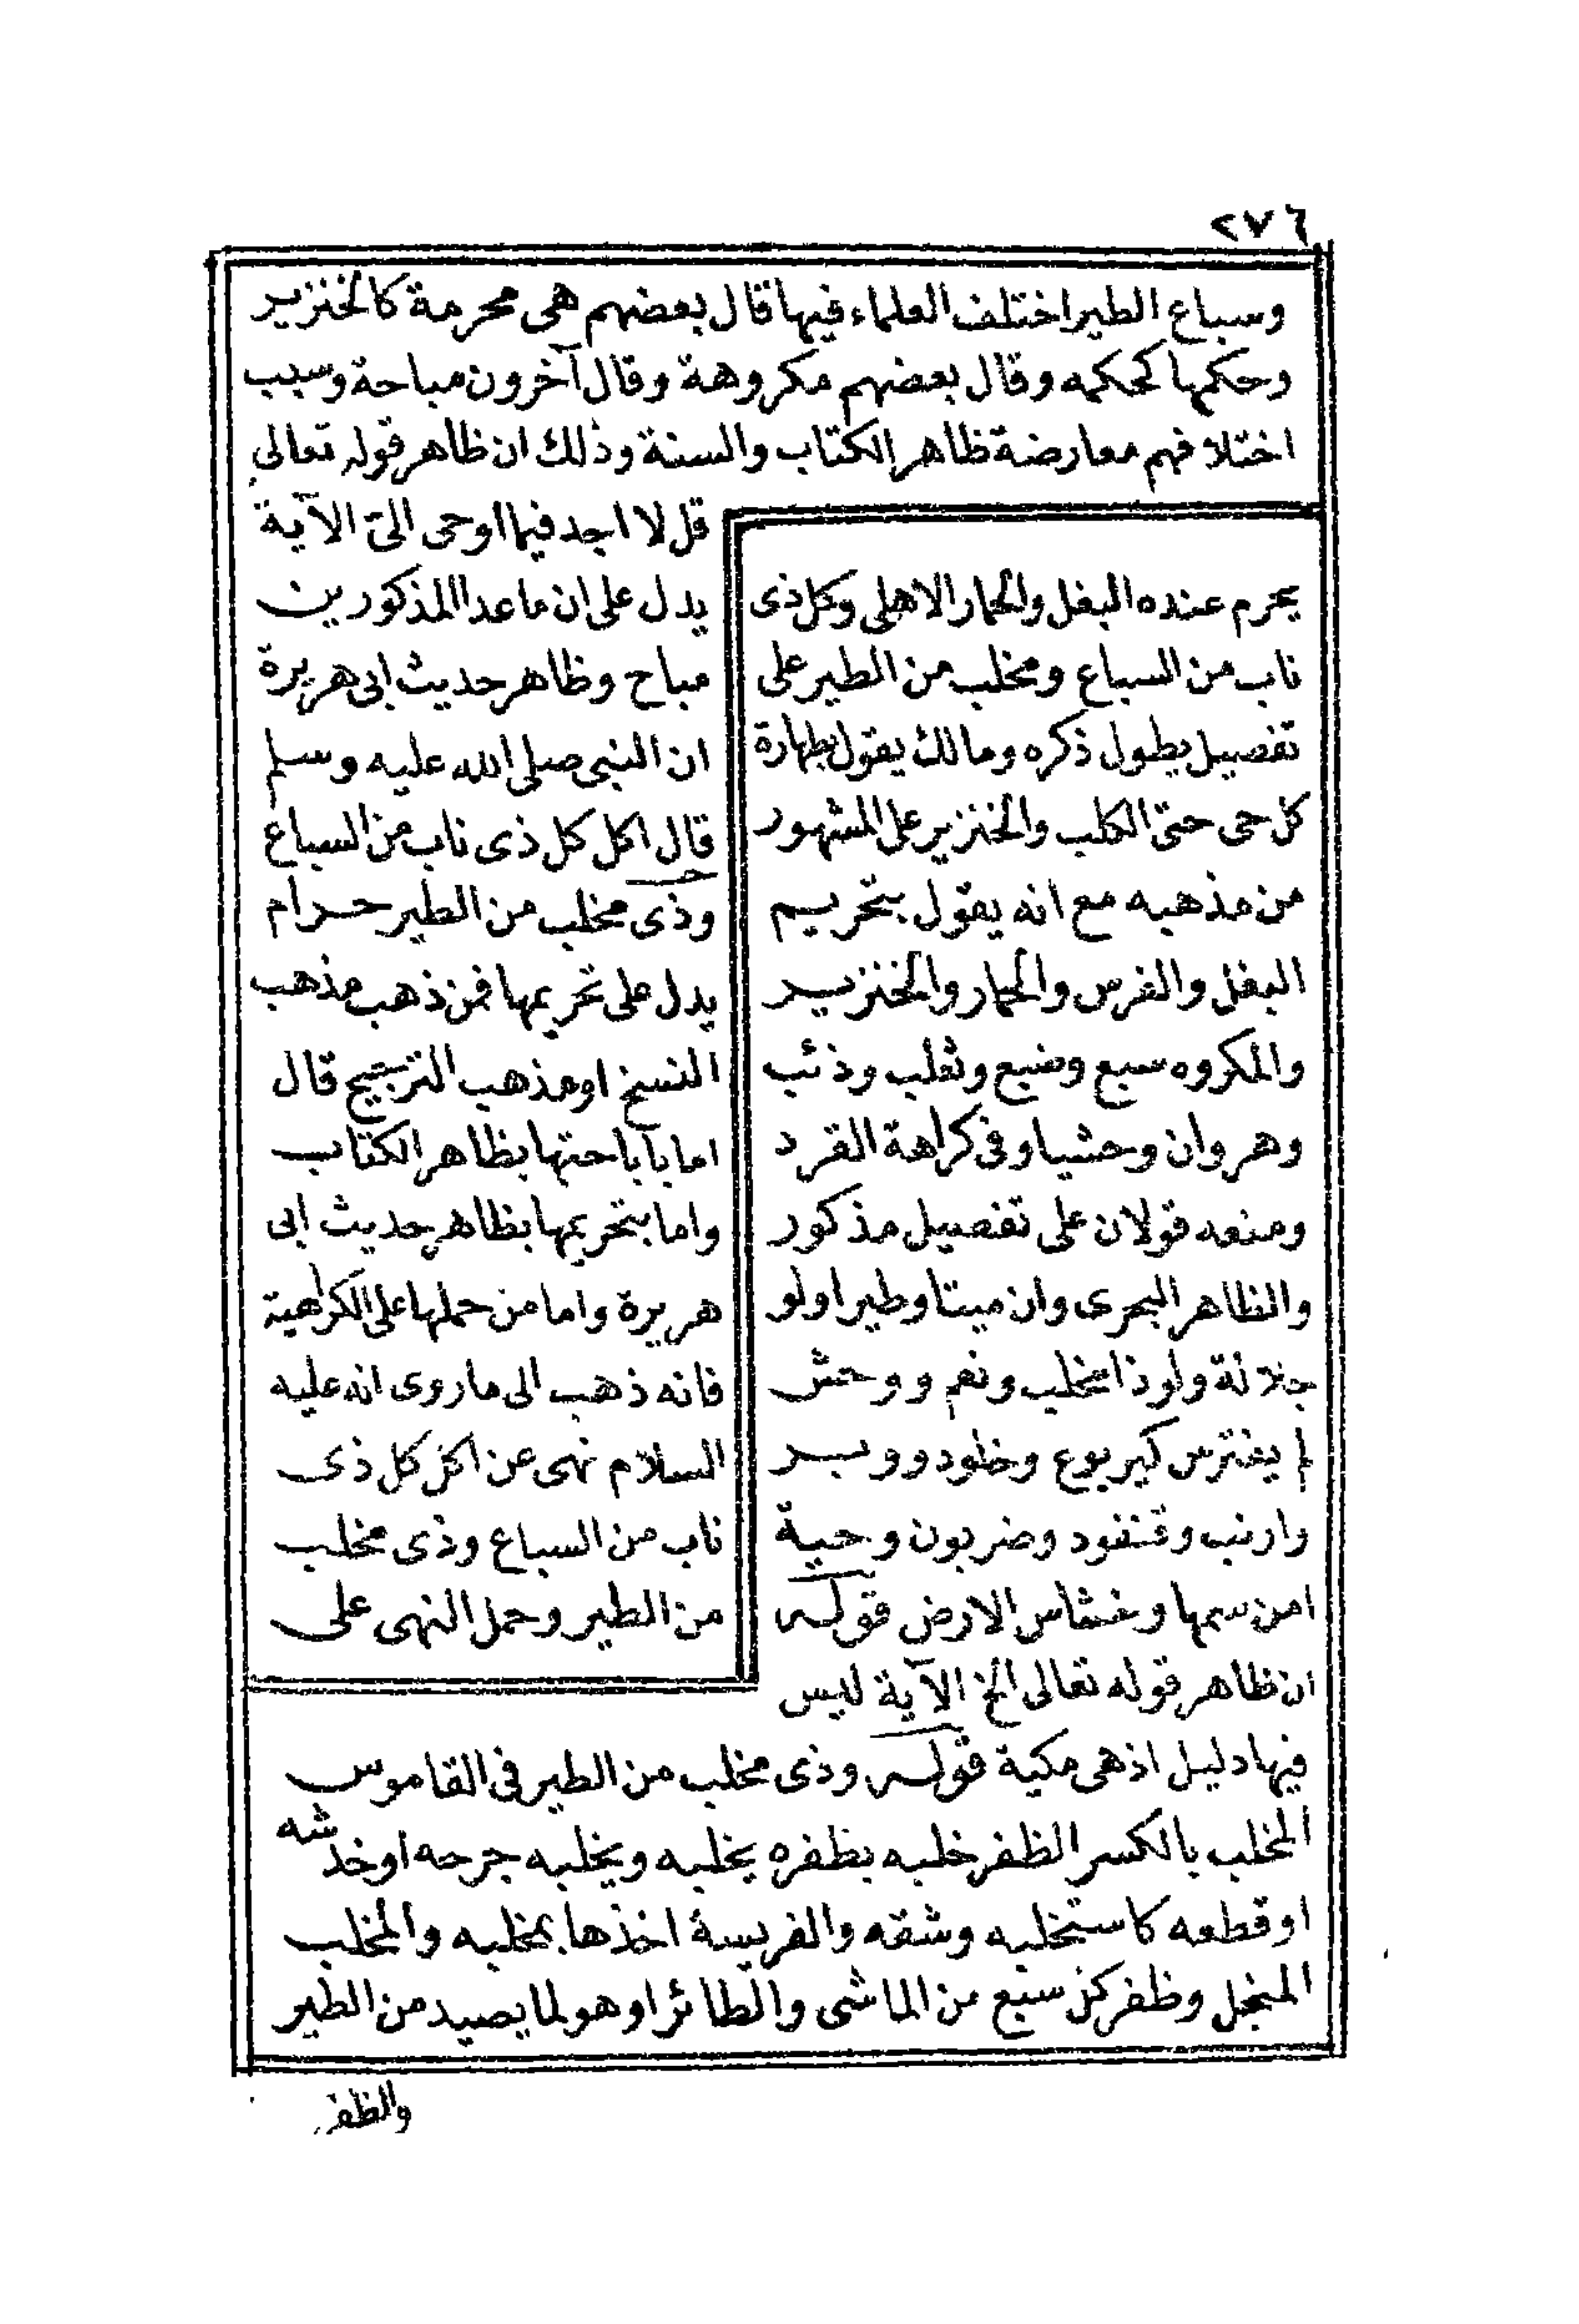 ٢٧٦
وسباع الطير اختلف العلماء فيها قال بعضهم هي محرمة كالخنزير
وحكمها كحكمه وقال بعضهم مكروهة وقال آخرون مباحة وسبب
اختلا فهم معارضة ظاهر الكتاب والسنة وذلك ان ظاهر قوله تعالى
قل لا اجد فيما اوحى الىّ الآية
يدل على ان ما عدا المذكورين
مباح وظاهر حديث ابى هريرة
ان النبى صلى الله عليه وسلم
قال اكل كل ذى ناب من السباع
وذى مخلب من الطير حرام
يدل على تحريمها فمن ذهب مذهب
النسخ او مذهب الترجيح قال
اما بأباحتها بظاهر الكتاب
واما بتحريمها بظاهر حديث ابى
هريرة واما من حملها على الكراهية
فانه ذهب الى ما روى انه عليه
السلام نهى عن اكل كل ذى
ناب من السباع وذى مخلب
من الطير وحمل النهى على
يحرم عنده البغل والحمار الاهلى وكل ذى
ناب من السباع ومخلب من الطير على
تفصيل يطول ذكره ومالك يقول بطهارة
كل حى حتى الكلب والخنزير على المشهور
من مذهبه مع انه يقول بتحريم
البغل والفرس والحمار والخنزير
والمكروه سبع وضبع وثعلب وذئب
وهر وان وحشيا وفى كراهة القرد
ومنعه قولان على تفصيل مذكور
والظاهر البحرى وان ميتا وطير اولو
جلالة ولو ذا مخلب ونعم ووحش
لم يفترس كيربوع وخلود ووبر
وارنب وقنفود وضربون وحية
امن سمها وخشاس الارض قوله
ان ظاهر قوله تعالى الخ الآية ليس
فيها دليل اذهى مكية قوله وذى مخلب من الطير فى القاموس
المخلب بالكسر الظفر خلبه بظفره يخلبه ويخلبه جرحه او خدشه
او قطعه كاستخلبه وشقه والفريسة اخذها بمخلبه والمخلب
المنجل وظفر كل سبع من الماشى والطائر او هو لما يصيد من الطير
والظفر